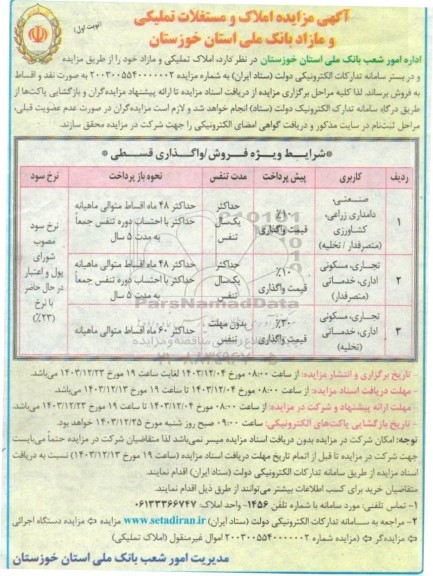 (نوبت اول)
آگهی مزایده املاک و مستغلات تملیکی
و مازاد بانک ملی استان خوزستان
اداره امور شعب بانک ملی استان خوزستان در نظر دارد، املاک تملیکی و مازاد خود را از طریق مزایده
و در بستر سامانه تدارکات الکترونیکی دولت (ستاد ایران) به شماره مزایده ۲۰۰۳۰۰۵۵۴۰۰۰۰۰۰۲ به صورت نقد و اقساط
به فروش برساند. لذا کلیه مراحل برگزاری مزایده از دریافت اسناد مزایده تا ارائه پیشنهاد مزایده‌گران و بازگشایی پاکت‌ها از
طریق درگاه سامانه تدارک الکترونیک دولت (ستاد) انجام خواهد شد و لازم است مزایده‌گران در صورت عدم عضویت قبلی،
مراحل ثبت‌نام در سایت مذکور و دریافت گواهی امضای الکترونیکی را جهت شرکت در مزایده محقق سازند.
*شرایط ویژه فروش/واگذاری قسطی*
ردیف کاربری پیش پرداخت مدت تنفس نحوه باز پرداخت نرخ سود
۱ صنعتی، دامداری زراعی، کشاورزی (متصرفدار / تخلیه) ۱۰٪ قیمت واگذاری حداکثر یک‌سال تنفس حداکثر ۴۸ ماه اقساط متوالی ماهیانه حداکثر با احتساب دوره تنفس جمعاً به مدت ۵ سال
۲ تجاری، مسکونی اداری، خدماتی (متصرفدار) ۱۰٪ قیمت واگذاری حداکثر یک‌سال تنفس حداکثر ۴۸ ماه اقساط متوالی ماهیانه حداکثر با احتساب دوره تنفس جمعاً به مدت ۵ سال
۳ تجاری، مسکونی اداری، خدماتی (تخلیه) ۳۰٪ قیمت واگذاری بدون مهلت تنفس حداکثر ۶۰ ماه اقساط متوالی ماهیانه
نرخ سود مصوب شورای پول و اعتبار در حال حاضر با نرخ (۲۳٪)
ParsNamadData
- تاریخ برگزاری و انتشار مزایده: از ساعت ۰۸:۰۰ مورخ ۱۴۰۳/۱۲/۰۴ لغایت ساعت ۱۹ مورخ ۱۴۰۳/۱۲/۲۳ می‌باشد.
- مهلت دریافت اسناد مزایده: از ساعت ۰۸:۰۰ مورخ ۱۴۰۳/۱۲/۰۴ تا ساعت ۱۹ مورخ ۱۴۰۳/۱۲/۱۳ می‌باشد.
- مهلت ارائه پیشنهاد و شرکت در مزایده: از ساعت ۰۸:۰۰ مورخ ۱۴۰۳/۱۲/۰۴ تا ساعت ۱۹ مورخ ۱۴۰۳/۱۲/۲۳ می‌باشد.
- تاریخ بازگشایی پاکت‌های الکترونیکی: ساعت ۰۹:۰۰ صبح روز شنبه مورخ ۱۴۰۳/۱۲/۲۵ خواهد بود.
توجه: امکان شرکت در مزایده بدون دریافت اسناد مزایده میسر نمی‌باشد لذا متقاضیان شرکت در مزایده حتماً می‌بایست
جهت شرکت در مزایده تا قبل از اتمام تاریخ مهلت دریافت اسناد مزایده (ساعت ۱۹ مورخ ۱۴۰۳/۱۲/۱۳) نسبت به دریافت
اسناد مزایده از طریق سامانه تدارکات الکترونیکی دولت (ستاد ایران) اقدام نمایند.
متقاضیان خرید برای کسب اطلاعات بیشتر می‌توانند از طرق ذیل اقدام نمایند.
۱- تماس تلفنی: مورد سامانه با شماره تلفن ۱۴۵۶- واحد املاک: ۰۶۱۳۳۳۶۶۷۴۷
۲- مراجعه به سامانه تدارکات الکترونیکی دولت (ستاد ایران) www.setadiran.ir ⇦ مزایده ⇦ مزایده دستگاه اجرائی
⇦ مزایده‌گر ⇦ (مزایده شماره ۲۰۰۳۰۰۵۵۴۰۰۰۰۰۰۲ اموال غیرمنقول (املاک تملیکی)
مدیریت امور شعب بانک ملی استان خوزستان